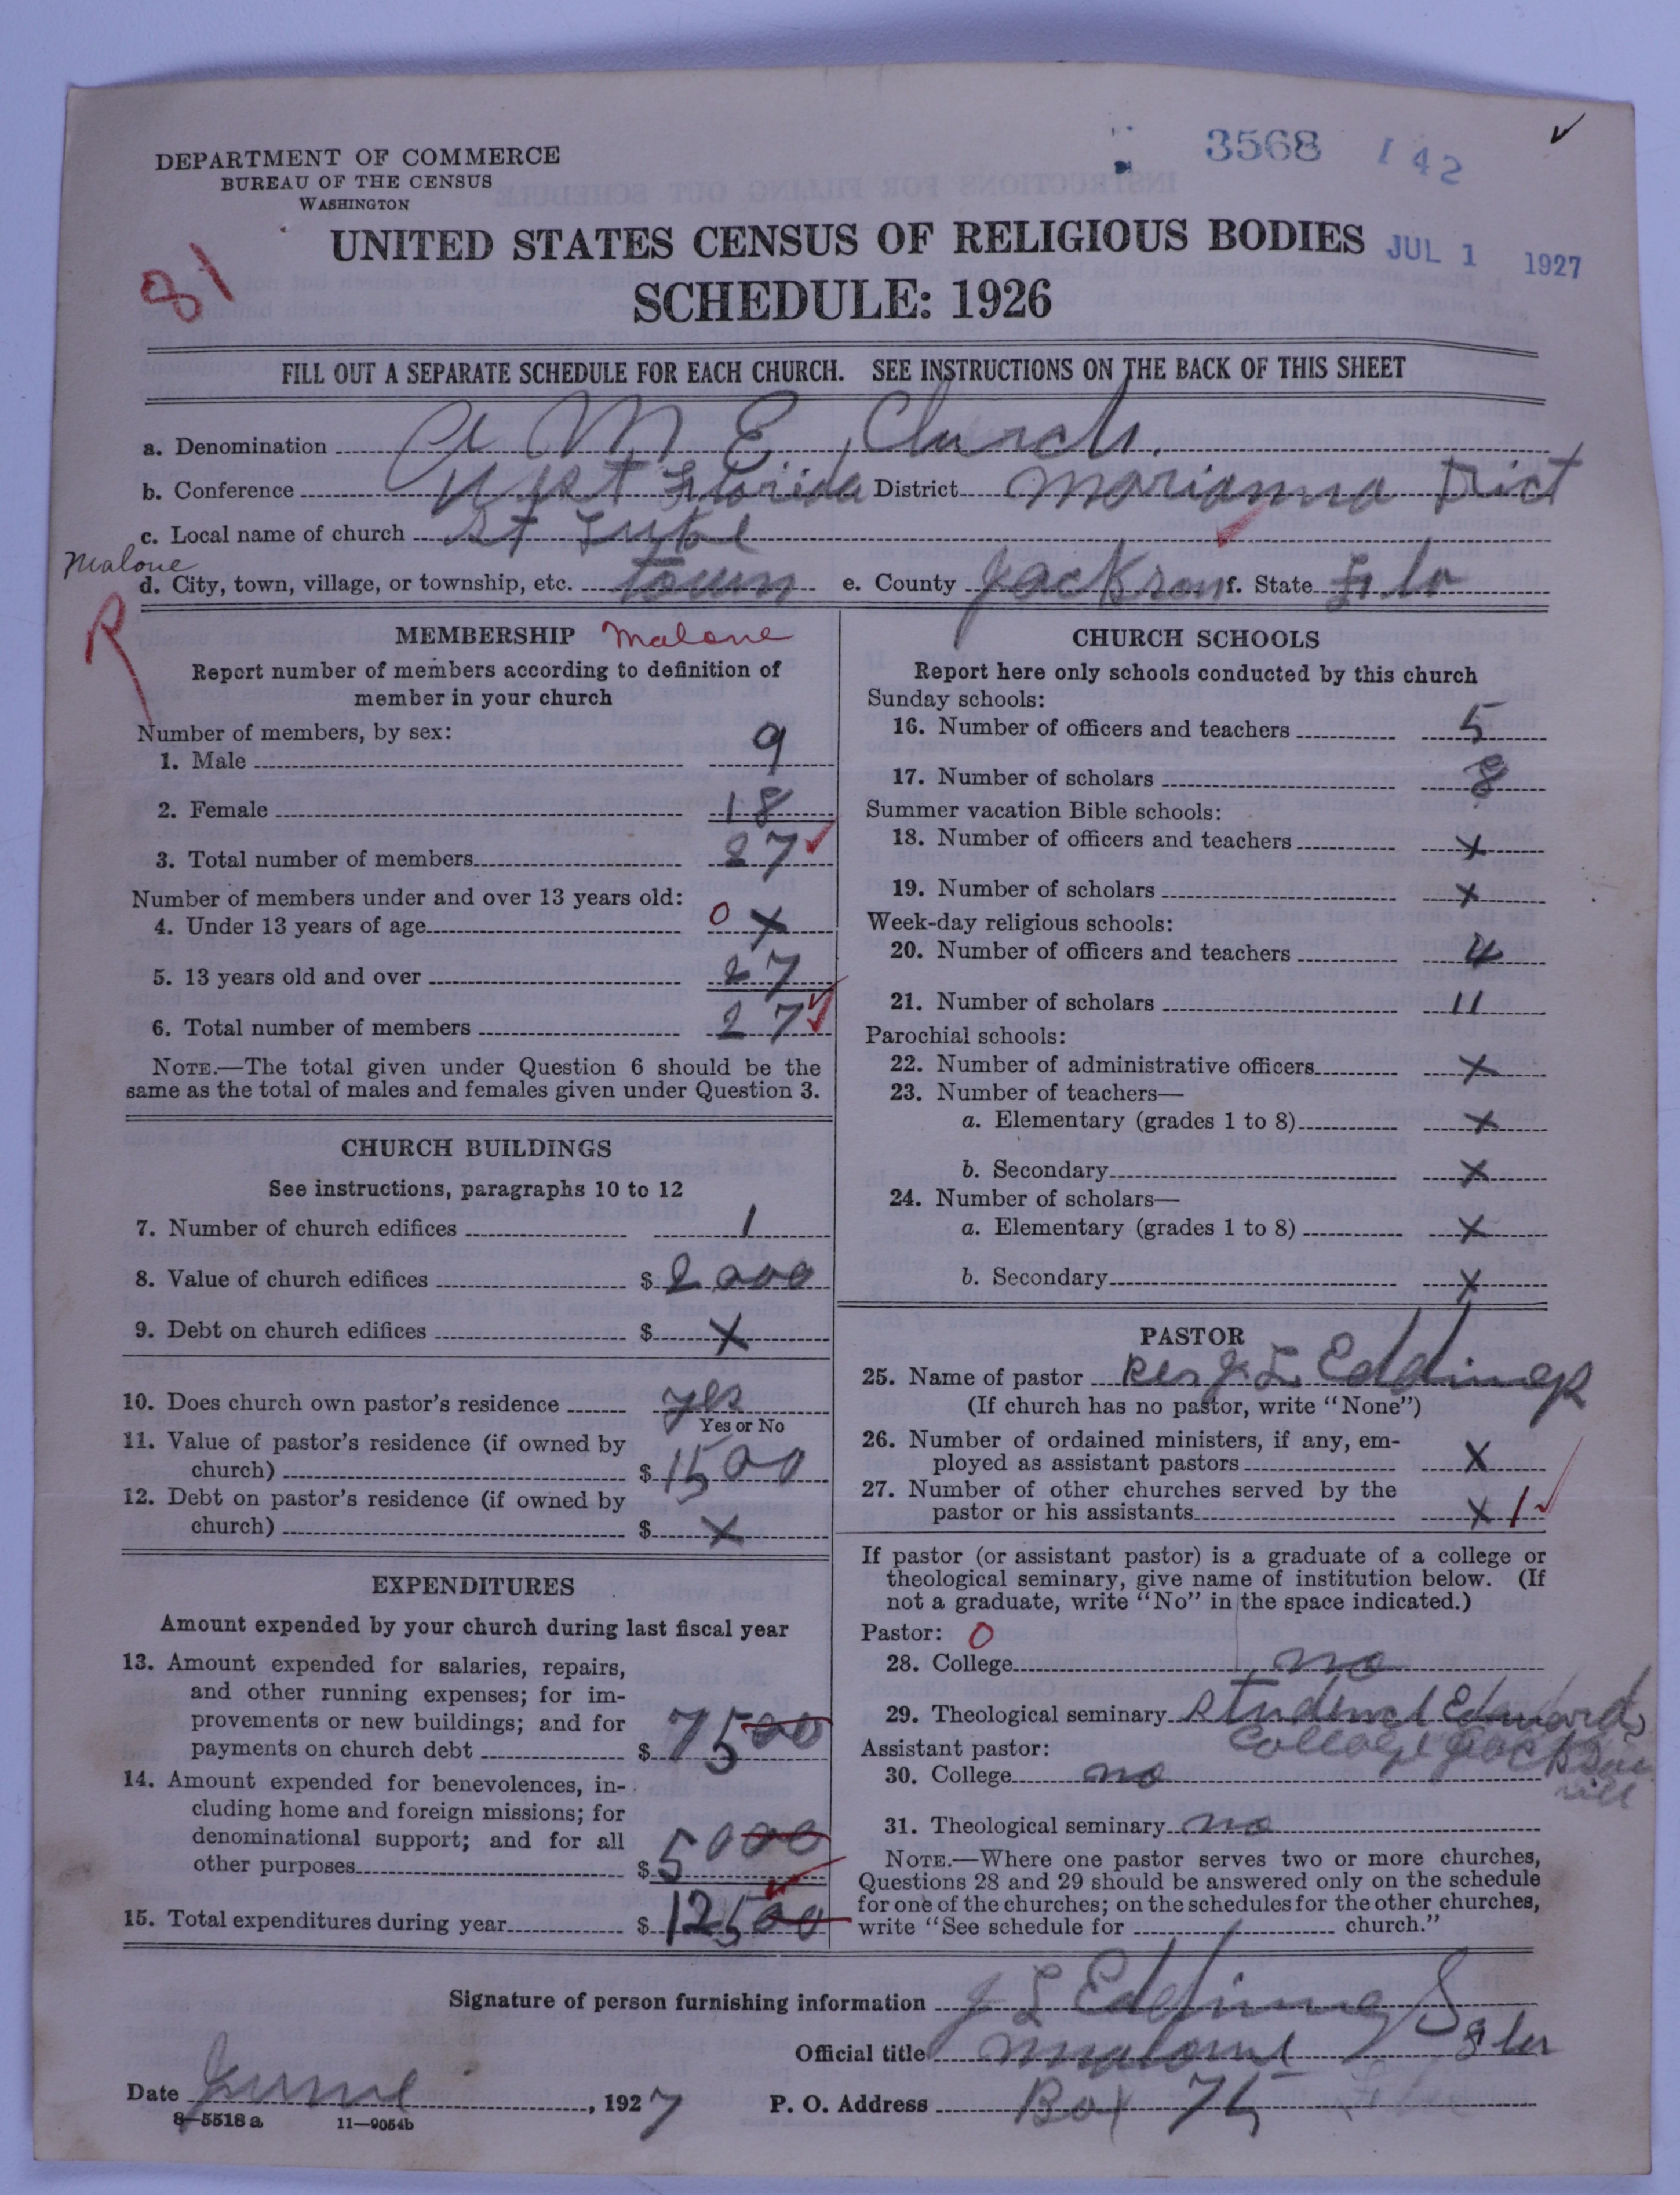 3568 142
DEPARTMENT OF COMMERCE
BUREAU OF THE CENSUS
WASHINGTON
81
UNITED STATES CENSUS OF RELIGIOUS BODIES
JUL 1 1927
SCHEDULE: 1926
FILL OUT A SEPARATE SCHEDULE FOR EACH CHURCH. SEE INSTRUCTIONS ON THE BACK OF THIS SHEET
a. Denomination A M E Church.
b. Conference West Florida District Marianna Dict
c. Local name of church St Luke
Malone
d. City, town, village, or township, etc. town e. County Jackson f. State Fla
R
MEMBERSHIP Malone
Report number of members according to definition of
member in your church
Number of members, by sex:
1. Male 9
2. Female 18
3. Total number of members 27
Number of members under and over 13 years old:
4. Under 13 years of age 0 x
5. 13 years old and over 27
6. Total number of members 27
NOTE.—The total given under Question 6 should be the
same as the total of males and females given under Question 3.
CHURCH BUILDINGS
See instructions, paragraphs 10 to 12
7. Number of church edifices 1
8. Value of church edifices $ 2000
9. Debt on church edifices $ x
10. Does church own pastor's residence yes
Yes or No
11. Value of pastor's residence (if owned by
church) $ 1500
12. Debt on pastor's residence (if owned by
church) $ x
EXPENDITURES
Amount expended by your church during last fiscal year
13. Amount expended for salaries, repairs,
and other running expenses; for im-
provements or new buildings; and for
payments on church debt $ 7500
14. Amount expended for benevolences, in-
cluding home and foreign missions; for
denominational support; and for all
other purposes $ 5000
15. Total expenditures during year $ 12500
CHURCH SCHOOLS
Report here only schools conducted by this church
Sunday schools:
16. Number of officers and teachers 5
17. Number of scholars 8
Summer vacation Bible schools:
18. Number of officers and teachers x
19. Number of scholars x
Week-day religious schools:
20. Number of officers and teachers 4
21. Number of scholars 11
Parochial schools:
22. Number of administrative officers x
23. Number of teachers—
a. Elementary (grades 1 to 8) x
b. Secondary x
24. Number of scholars—
a. Elementary (grades 1 to 8) x
b. Secondary x
PASTOR
25. Name of pastor Rev J. L. Eddings
(If church has no pastor, write "None")
26. Number of ordained ministers, if any, em-
ployed as assistant pastors x
27. Number of other churches served by the
pastor or his assistants x 1
If pastor (or assistant pastor) is a graduate of a college or
theological seminary, give name of institution below. (If
not a graduate, write "No" in the space indicated.)
Pastor: 0
28. College no
29. Theological seminary student Edward
College Jackson
vill
Assistant pastor:
30. College no
31. Theological seminary no
NOTE.—Where one pastor serves two or more churches,
Questions 28 and 29 should be answered only on the schedule
for one of the churches; on the schedules for the other churches,
write "See schedule for church."
Signature of person furnishing information J L Eddings
Official title Malone Fla
Date June, 1927 P. O. Address Box 75
8—5518 a 11—9054b